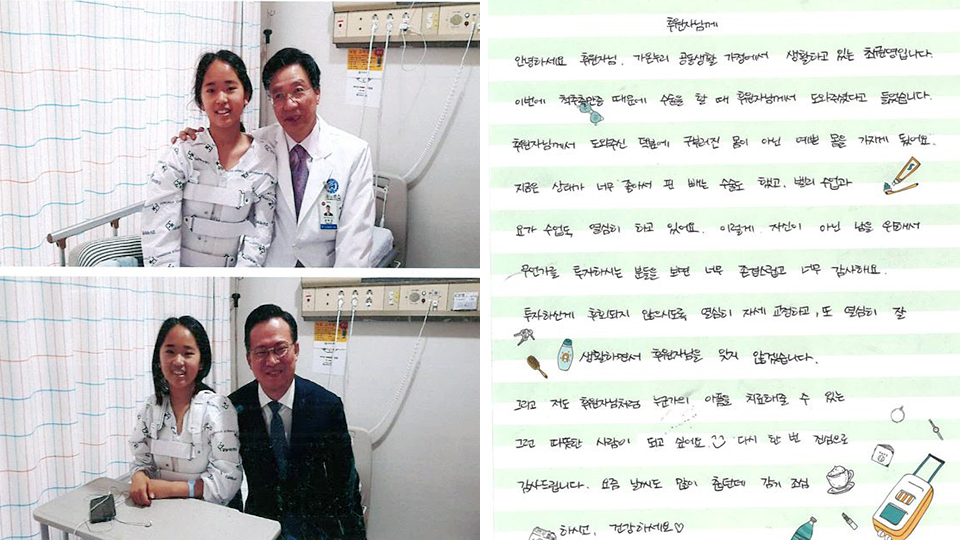 후원자님께
안녕하세요 후원자님. 가온누리 공동생활 가정에서 생활하고 있는 최 입니다.
이번에 척추측만증 때문에 수술을 할 때 후원자님께서 도와주셨다고 들었습니다.
후원자님께서 도와주신 덕분에 구부러진 몸이 아닌 예쁜 몸을 가지게 됐어요.
지금은 상태가 너무 좋아서 핀 빼는 수술도 했고, 발레 수업과
요가 수업도 열심히 하고 있어요. 이렇게 자신이 아닌 남을 위해서
무언가를 투자하시는 분들을 보면 너무 존경스럽고 너무 감사해요.
투자하신게 후회되지 않으시도록 열심히 자세 교정하고, 또 열심히 잘
생활하면서 후원자님을 잊지 않겠습니다.
그리고 저도 후원자님처럼 누군가의 아픔을 치료해줄 수 있는
그런 따뜻한 사람이 되고 싶어요. 다시 한 번 진심으로
감사드립니다. 요즘 날씨도 많이 춥던데 감기 조심
하시고, 건강하세요♡